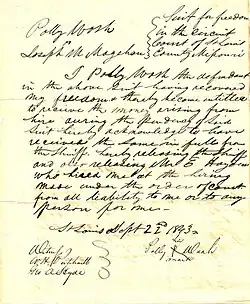 Polly Wash
Suit for freedom
in the circuit
Court of St Louis
Joseph M Magehan
County Missouri
I Polly Wash the defendant
in the above suit having recovered
my freedom & thereby become entitled
to receive the money arising from
hire during the pendency of said
suit hereby acknowledge to have
received the same in full from
the Sheriff hereby releasing the Sheriff
and
who hired me at the hiring
made under the order of court
from all liability to me or to any
person for me
St Louis Sept 22 1843
Polly Wash
her
mark